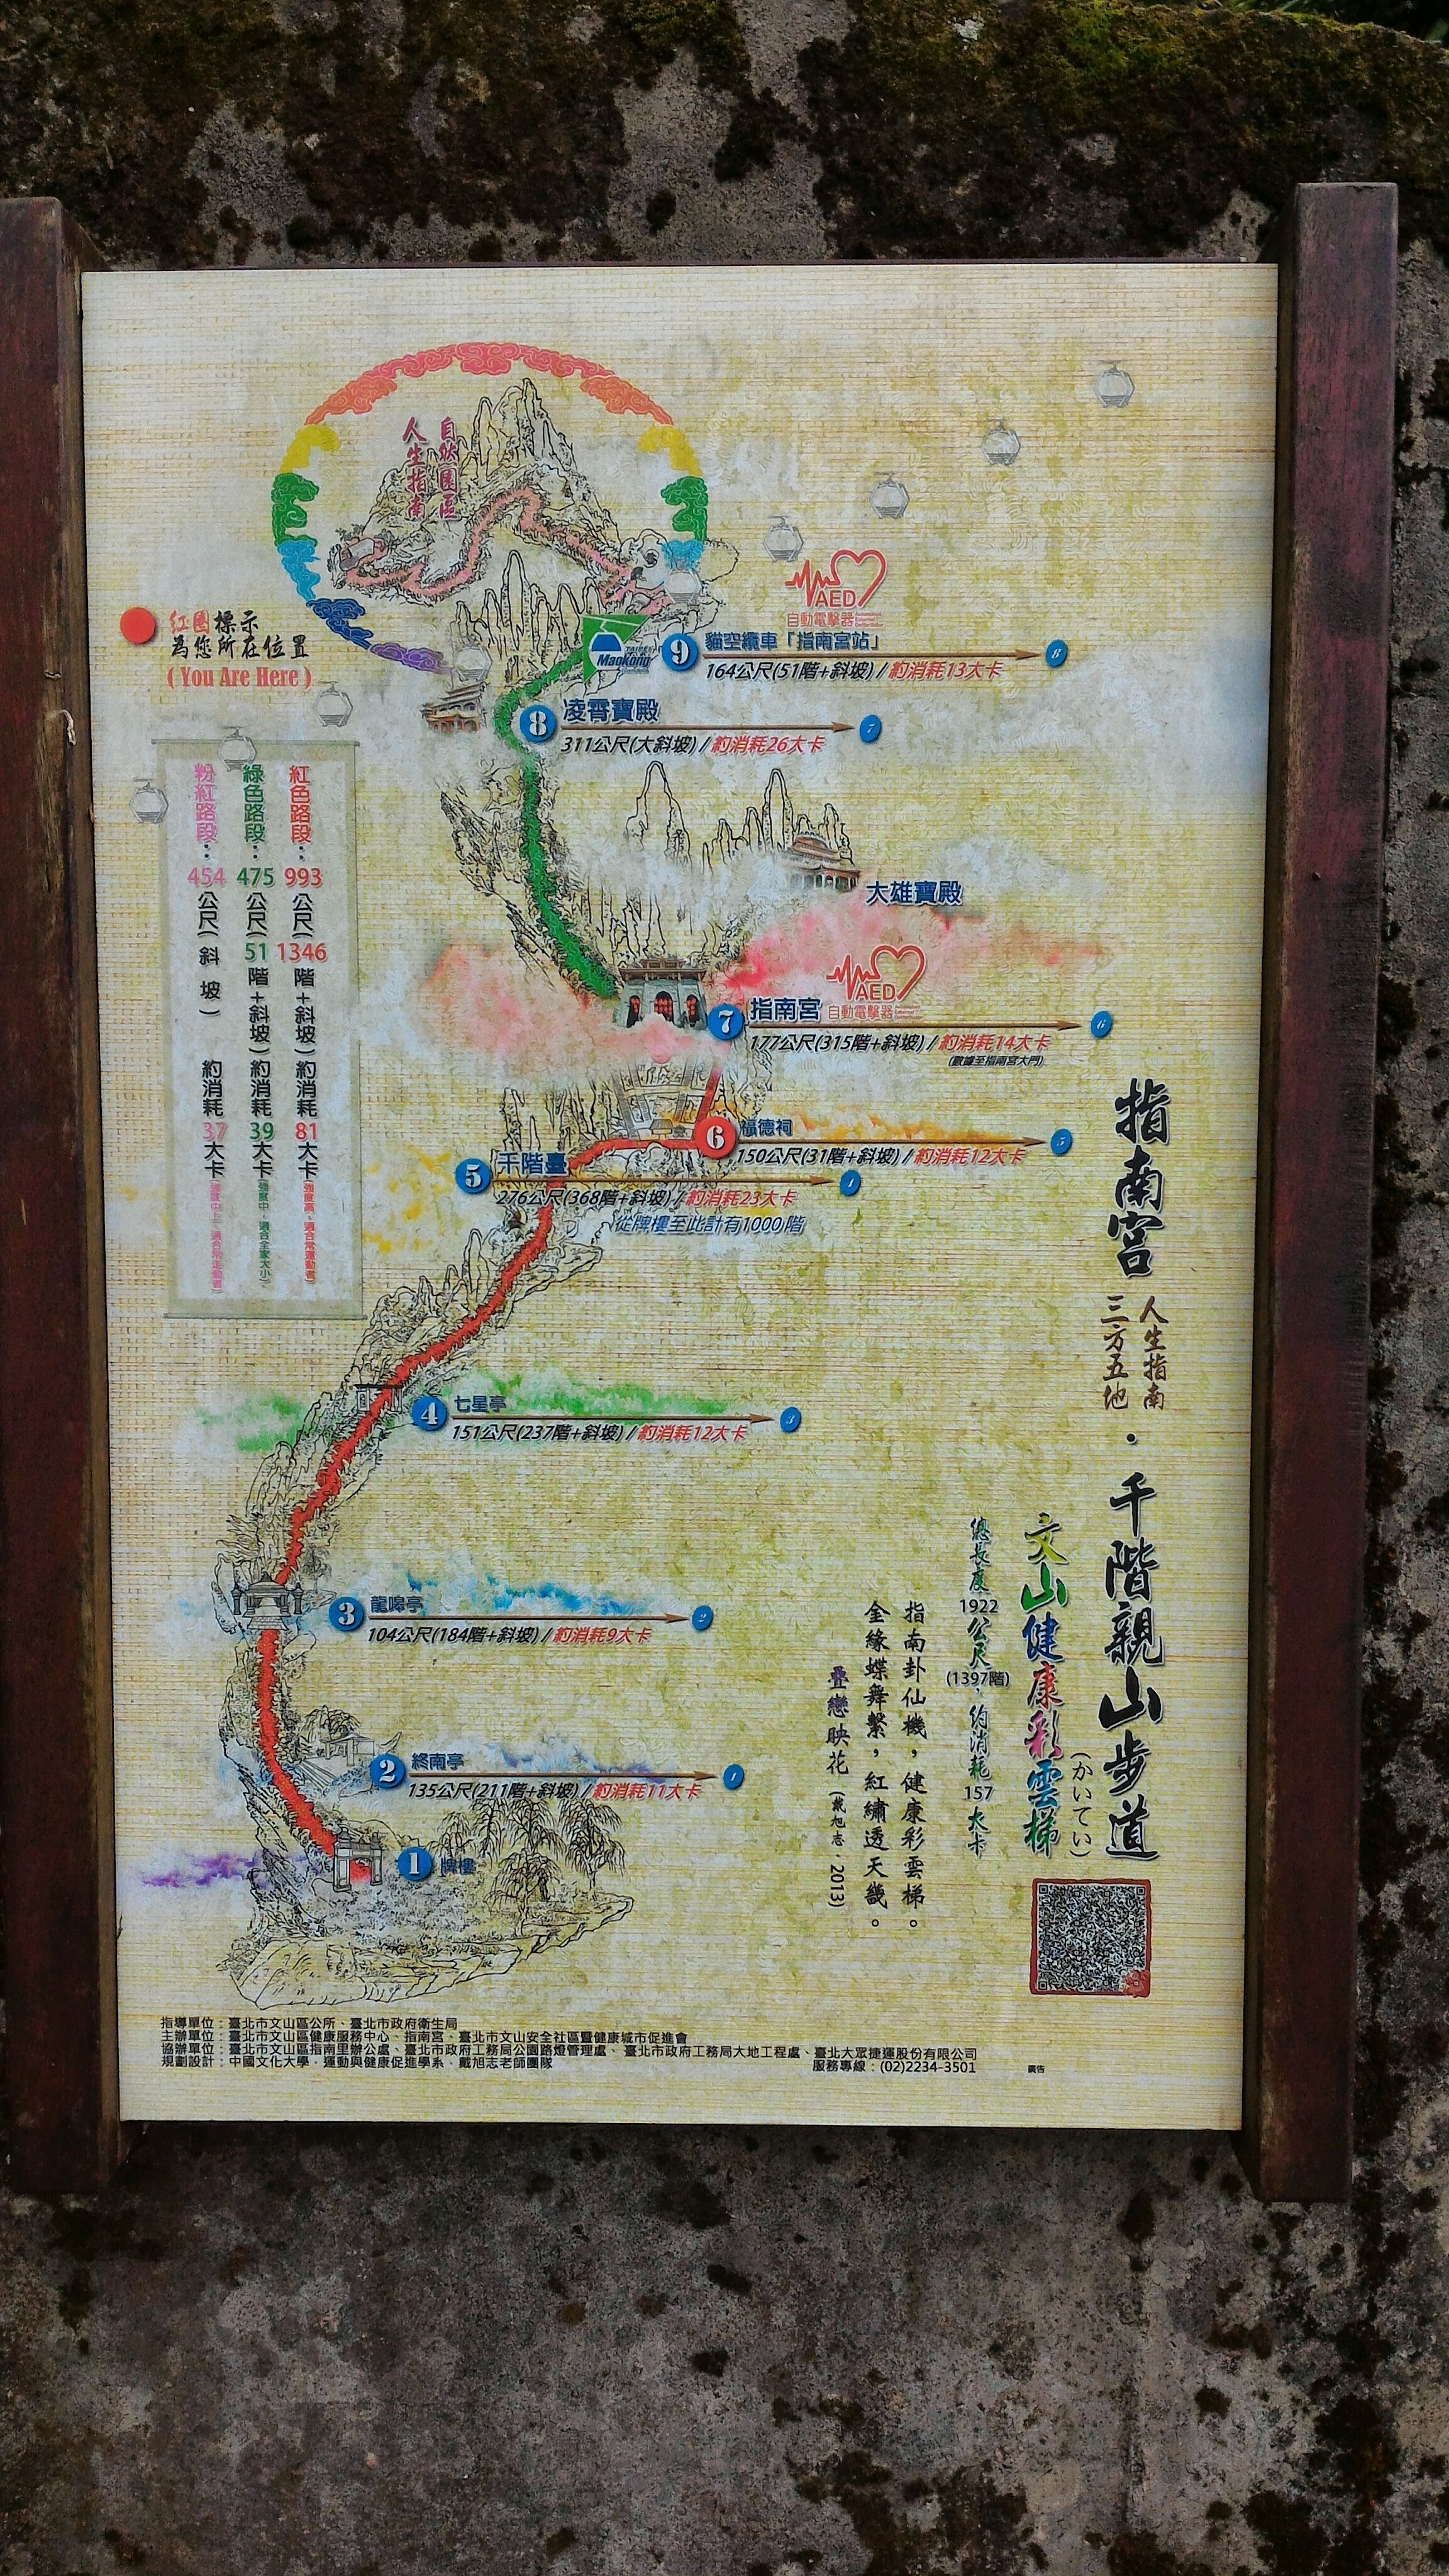 指南宮
人生指南
三方五地
·千階親山步道
(かいてい)
文山健康彩雲梯
總長度1922公尺(1397階),約消耗157大卡
指南卦仙機,健康彩雲梯。
金緣蝶舞繫,紅繡透天畿。
疊戀映花(戴旭志,2013)
自然園區
人生指南
紅圈標示
為您所在位置
(You Are Here)
紅色路段:993公尺(1346階+斜坡)約消耗81大卡(強度高、適合常運動者)
綠色路段:475公尺(51階+斜坡)約消耗39大卡(強度中、適合全家大小)
粉紅路段:454公尺(斜坡) 約消耗37大卡(強度中上、適合常走動者)
AED
自動電擊器
Maokong
9 貓空纜車「指南宮站」 8
164公尺(51階+斜坡)/約消耗13大卡
8 凌霄寶殿 7
311公尺(大斜坡)/約消耗26大卡
大雄寶殿
AED
自動電擊器
7 指南宮 6
177公尺(315階+斜坡)/約消耗14大卡
(數據至指南宮大門)
6 福德祠 5
150公尺(31階+斜坡)/約消耗12大卡
5 千階臺 4
276公尺(368階+斜坡)/約消耗23大卡
從牌樓至此計有1000階
4 七星亭 3
151公尺(237階+斜坡)/約消耗12大卡
3 龍嗥亭 2
104公尺(184階+斜坡)/約消耗9大卡
2 終南亭 1
135公尺(211階+斜坡)/約消耗11大卡
1 牌樓
指導單位:臺北市文山區公所、臺北市政府衛生局
主辦單位:臺北市文山區健康服務中心、指南宮、臺北市文山安全社區暨健康城市促進會
協辦單位:臺北市文山區指南里辦公處、臺北市政府工務局公園路燈管理處、臺北市政府工務局大地工程處、臺北大眾捷運股份有限公司
規劃設計:中國文化大學.運動與健康促進學系、戴旭志老師團隊
服務專線:(02)2234-3501
廣告